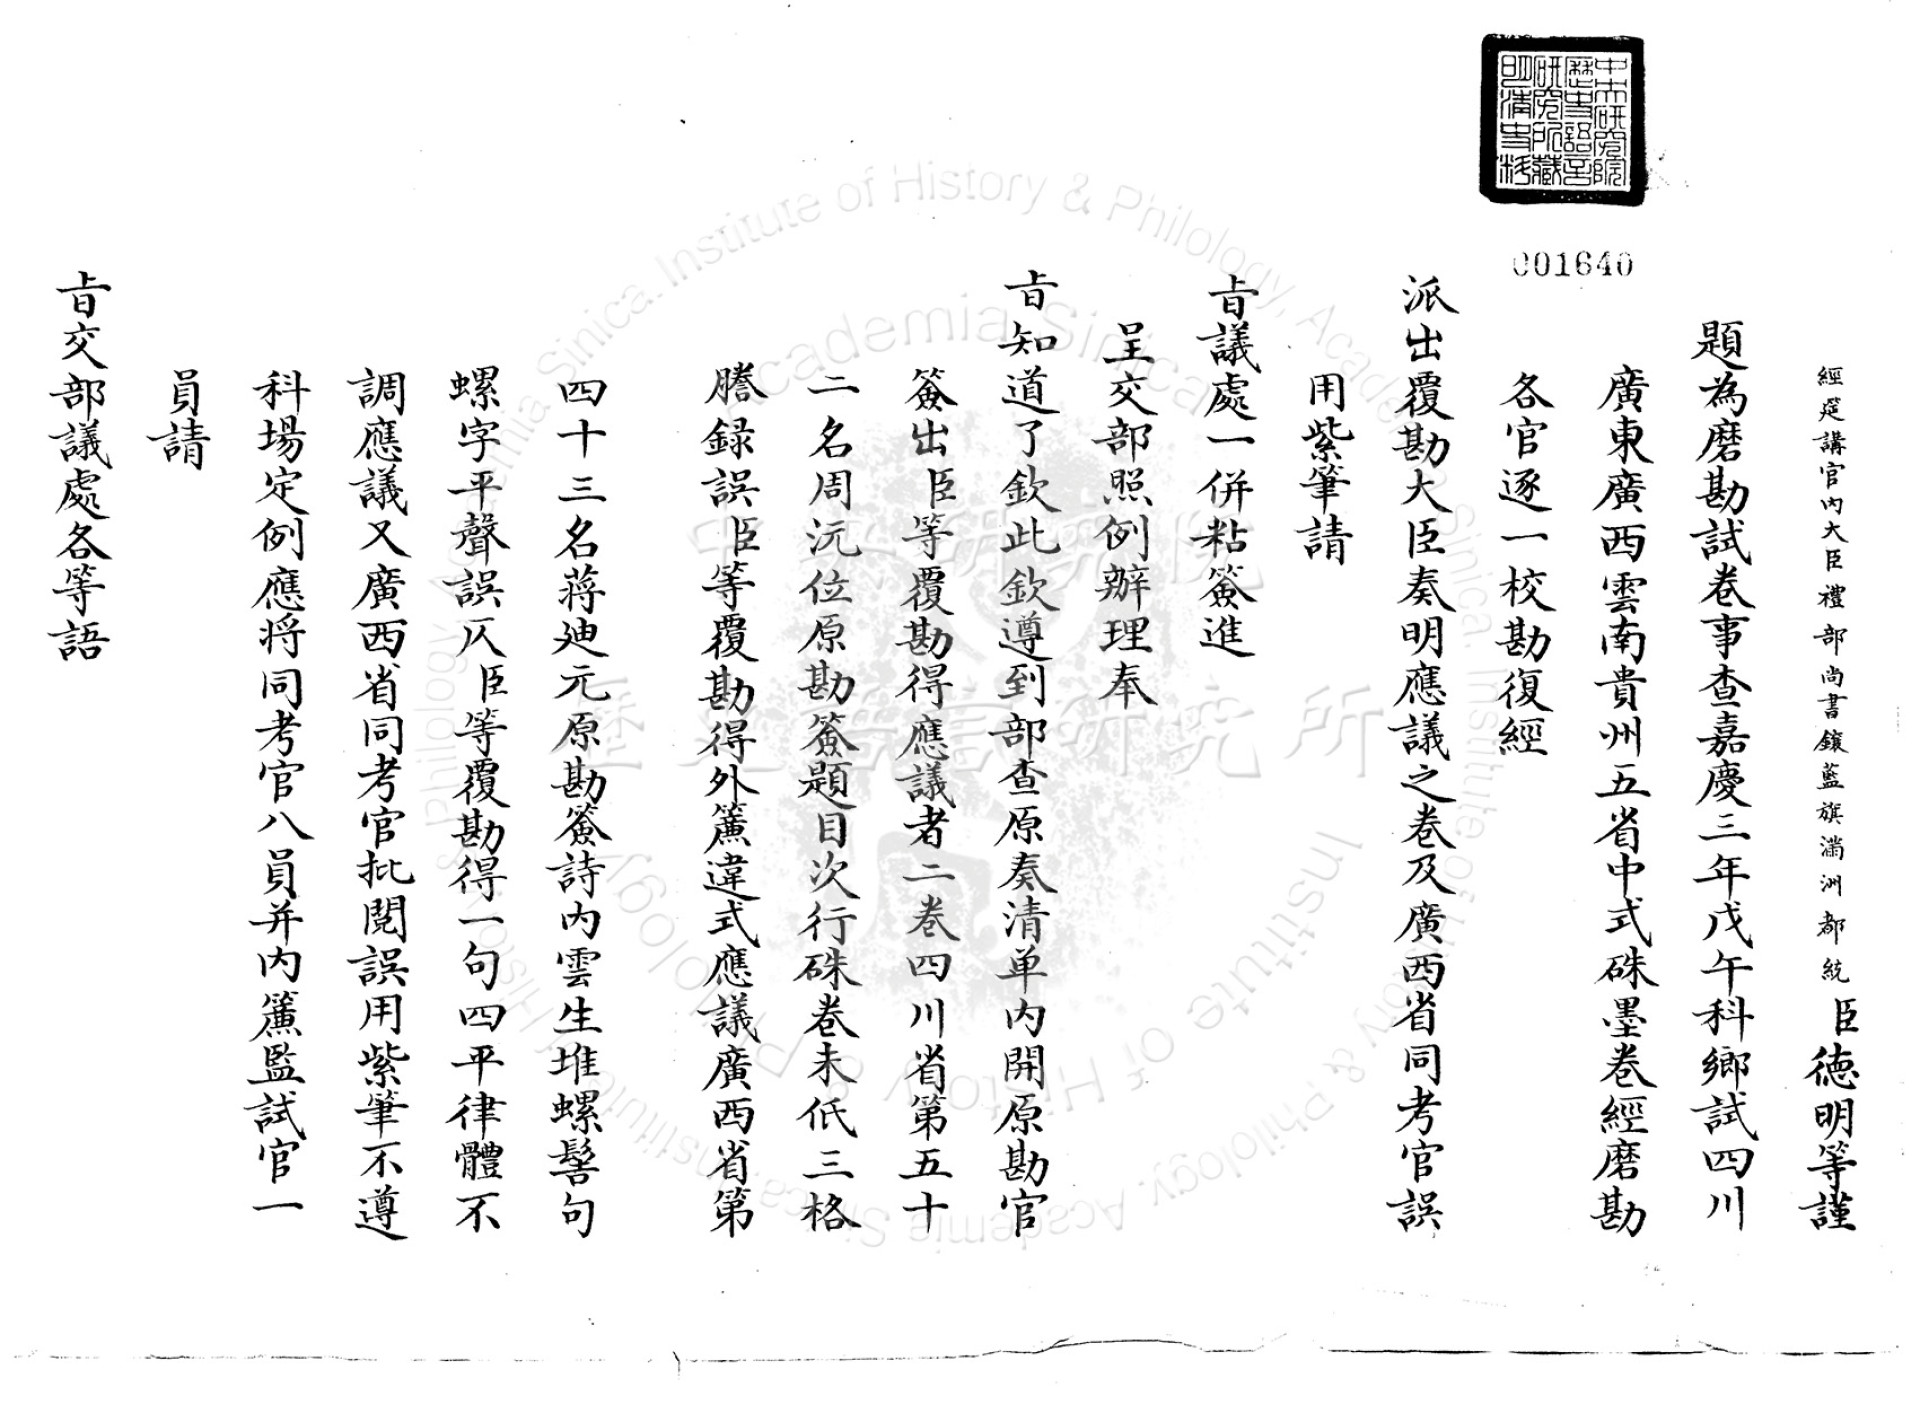 經筵講官內大臣禮部尚書鑲藍旗滿洲都統臣德明等謹
題為磨勘試卷事查嘉慶三年戊午科鄉試四川
廣東廣西雲南貴州五省中式硃墨卷經磨勘
各官逐一校勘復經
派出覆勘大臣奏明應議之卷及廣西省同考官誤
用紫筆請
旨議處一併粘簽進
呈交部照例辦理奉
旨知道了欽此欽遵到部查原奏清单內開原勘官
簽出臣等覆勘得應議者二卷四川省第五十
二名周沅位原勘簽題目次行硃卷未低三格
謄録誤臣等覆勘得外簾違式應議廣西省第
四十三名蔣廸元原勘簽詩內雲生堆螺髻句
螺字平聲誤仄臣等覆勘得一句四平律體不
調應議又廣西省同考官批閱誤用紫筆不遵
科場定例應将同考官八員并內簾監試官一
員請
旨交部議處各等語
中央研究院歷史語言研究所藏明清史料
001640
Institute of History & Philology, Academia Sinica
中央研究院
歷史語言研究所